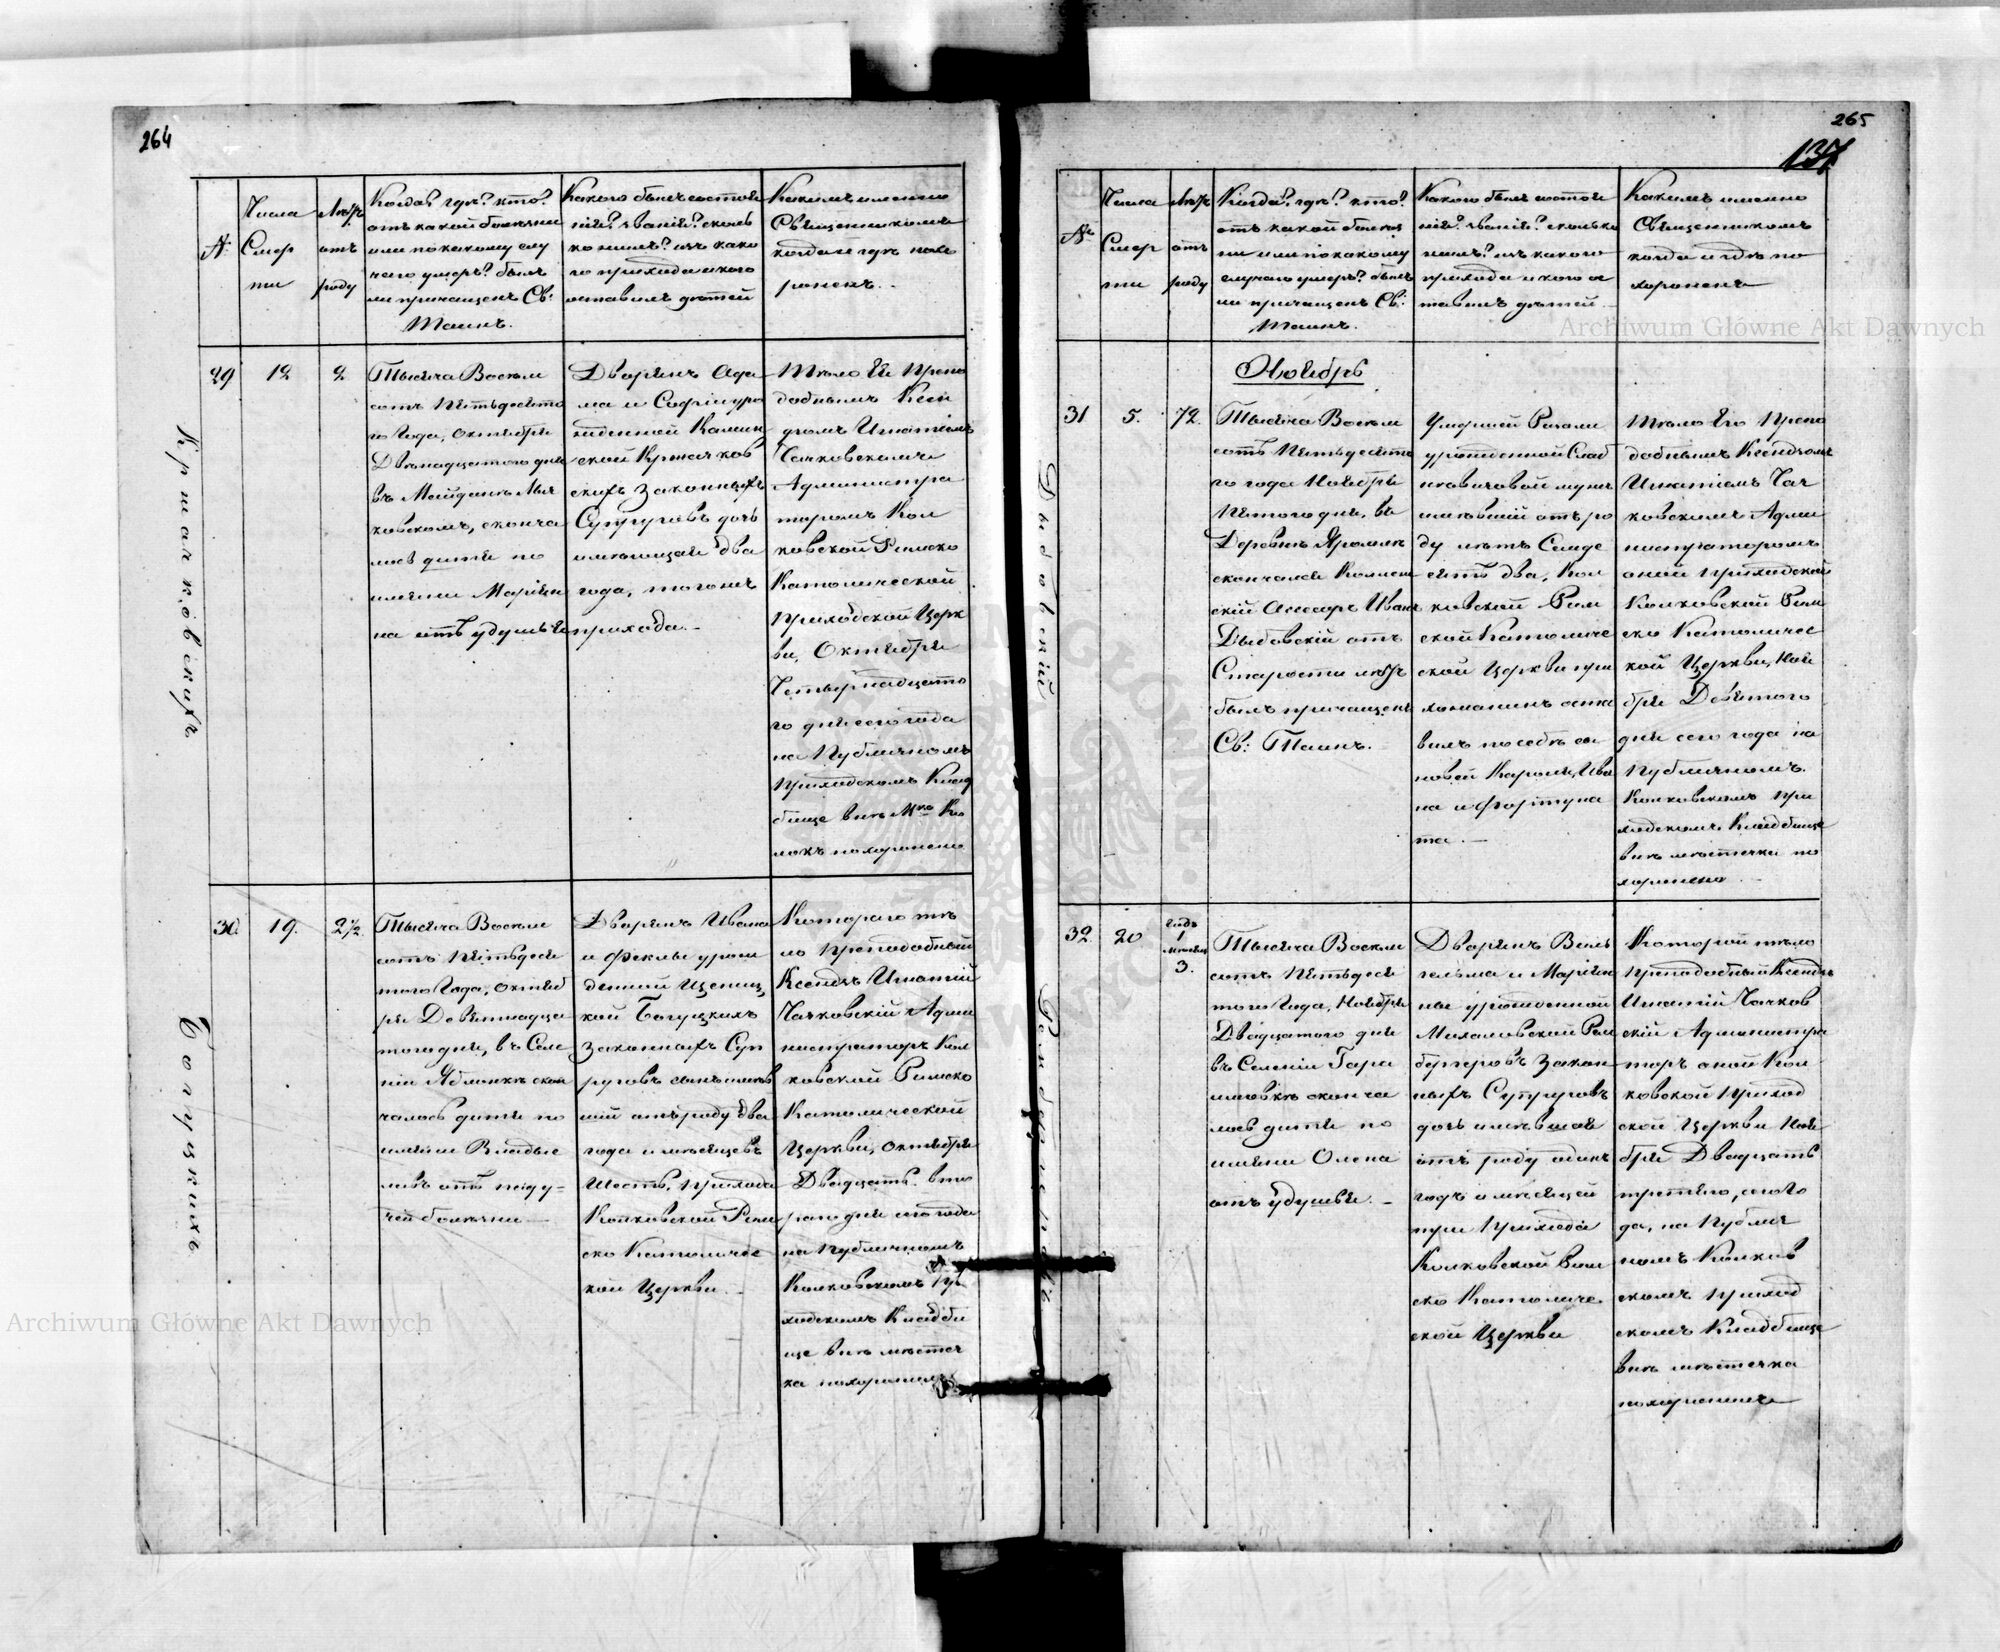 264
№
Числа
Смер
ти
Лѣтъ
отъ
роду
Когда? гдѣ? кто?
отъ какой болѣзни
или по какому слу
чаю умеръ? былъ
ли причащенъ Св:
Таинъ.
Какого былъ состоя
нія? званія? сколь
ко
го прихода и кого
оставилъ дѣтей
Какимъ именно
Священникомъ
когда и гдѣ похо
роненъ.
Кржачковскихъ
29
12
2
Тысяча Восемь
сотъ Пятьдесято
го Года, Октября
Двѣнадцатого дня
въ Майданѣ
ковскомъ, сконча
лось дитя по
имени Маріян
на отъ удушья
Дворянъ Ада
ма и Софіи уро
жденной Камин
ской Кржачков
скихъ Законныхъ
Супруговъ дочь
имѣющая два
года, тогожъ
прихода.
Тѣло Ея Препо
добнымъ Ксен
дзомъ Игнатіемъ
Чачковскимъ
Администра
торомъ Кол
ковской Римско
Католической
приходской Церк
ви, Октября
Четырнадцато
го дня сего года
на Публичномъ
Приходскомъ Клад
бище внѣ М-ка Ко
локъ похоронено
Богуцкихъ
30
19.
2½
Тысяча Восемь
сотъ Пятьдеся
того Года, Октяб
ря Девятнадца
того дня, въ Селе
ніи Яблонкѣ скон
чалось дитя по
имени Владис
лавъ отъ паду=
чей болѣзни
Дворянъ Ивана
и Феклы урож
денной
кой Богуцкихъ
Законныхъ Суп
руговъ сынъ имѣв
шій отъ роду два
года и мѣсяцевъ
Шесть, прихода
Колковской Рим
ско Католичес
кой Церкви.
Котораго тѣ
ло Преподобный
Ксендзъ Игнатій
Чачковскій Адми
нистраторъ Кол
ковской Римско
Католической
Церкви, Октября
Двадцать вто
раго дня сего года
на Публичномъ
Колковскомъ при
ходскомъ Кладби
ще внѣ мѣстеч
ка похоронилъ
265
137
№
Числа
Смер
ти
Лѣтъ
отъ
роду
Когда? гдѣ? кто?
отъ какой болѣз
ни или по какому
случаю умеръ? былъ
ли причащенъ Св:
Таинъ.
Какого былъ состоя
нія? званія? сколько
нимъ? изъ какого
прихода и кого ос
тавилъ дѣтей
Какимъ именно
Священникомъ
когда и гдѣ по
хороненъ
Дыбовскій
Ноябрь
31
5.
72.
Тысяча Восемь
сотъ Пятьдесято
го года Ноября
Пятого дня, въ
Деревнѣ Яромлѣ
скончался Коллеж
скій Асесоръ Иванъ
Дыбовскій отъ
Старости лѣтъ
былъ причащенъ
Св: Таинъ.
Умершей Розаліи
урожденной
мужъ
имѣвшій отъ ро
ду лѣтъ Семьде
сятъ два, Кол
ковской Рим
ской Католиче
ской Церкви при
хожанинъ оста
вилъ по себѣ сы
новей Кароля, Ива
на и Фортуна
та.
Тѣло Его Препо
добнымъ Ксендзомъ
Игнатіемъ Чач
ковскимъ Адми
нистраторомъ
оной приходской
Колковской Рим
ско Католичес
кой Церкви, Ноя
бря Девятого
дня сего года на
Публичномъ
Колковскомъ при
ходскомъ Кладбище
внѣ мѣстечка по
хоронено
32.
20
Годъ
1
мѣсяцы
3.
Тысяча Восемь
сотъ Пятьдеся
того Года, Ноября
Двадцатого дня
въ Селеніи Гара
ймовкѣ сконча
лось дитя по
имени Олена
отъ удушья.
Дворянъ Виль
гельма и Маріян
ны урожденной
Михаловской Ром
бергеровъ Закон
ныхъ Супруговъ
дочь имѣвшая
отъ роду одинъ
годъ и мѣсяцей
три Прихода
Колковской Рим
ско Католиче
ской Церкви
Которой тѣло
Преподобный Ксендзъ
Игнатій Чачков
скій Администра
торъ оной Кол
ковской Приход
ской Церкви Ноя
бря Двадцать
третяго, сего Го
да, на Публич
номъ Колков
скомъ Приход
скомъ Кладбище
внѣ мѣстечка
похоронилъ
Archiwum Główne Akt Dawnych
Archiwum Główne Akt Dawnych